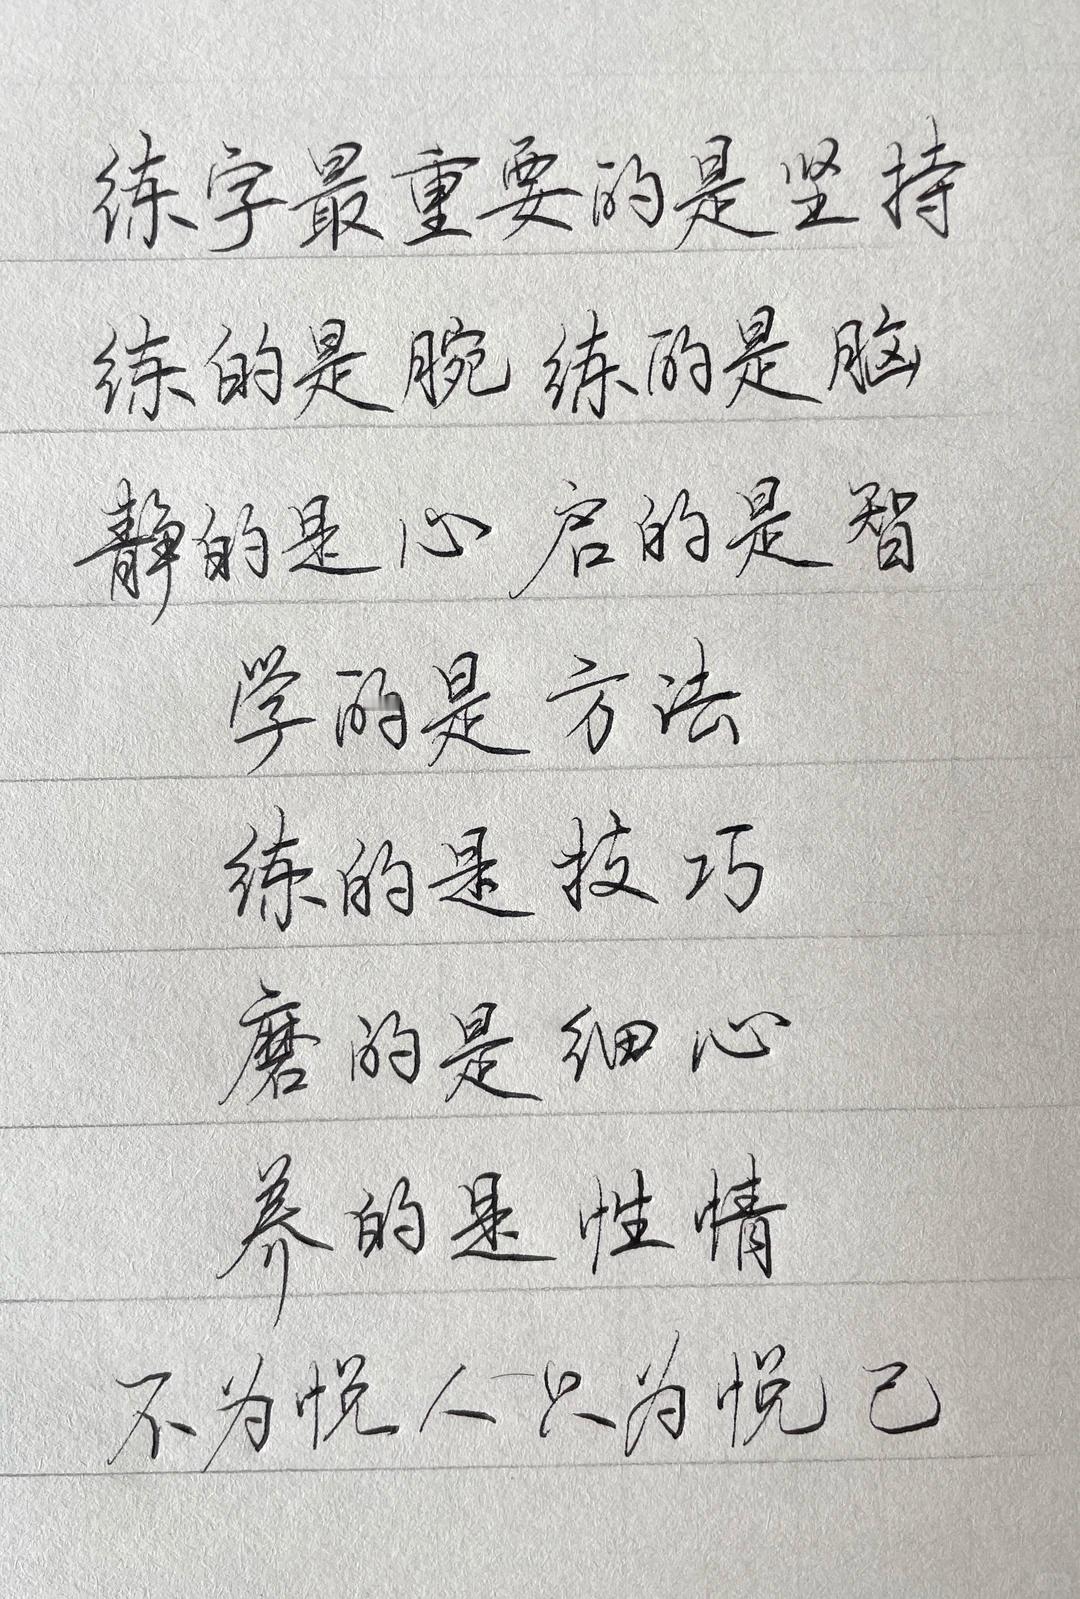 练字最重要的是坚持
练的是腕 练的是脑
静的是心 启的是智
学的是方法
练的是技巧
磨的是细心
养的是性情
不为悦人只为悦己